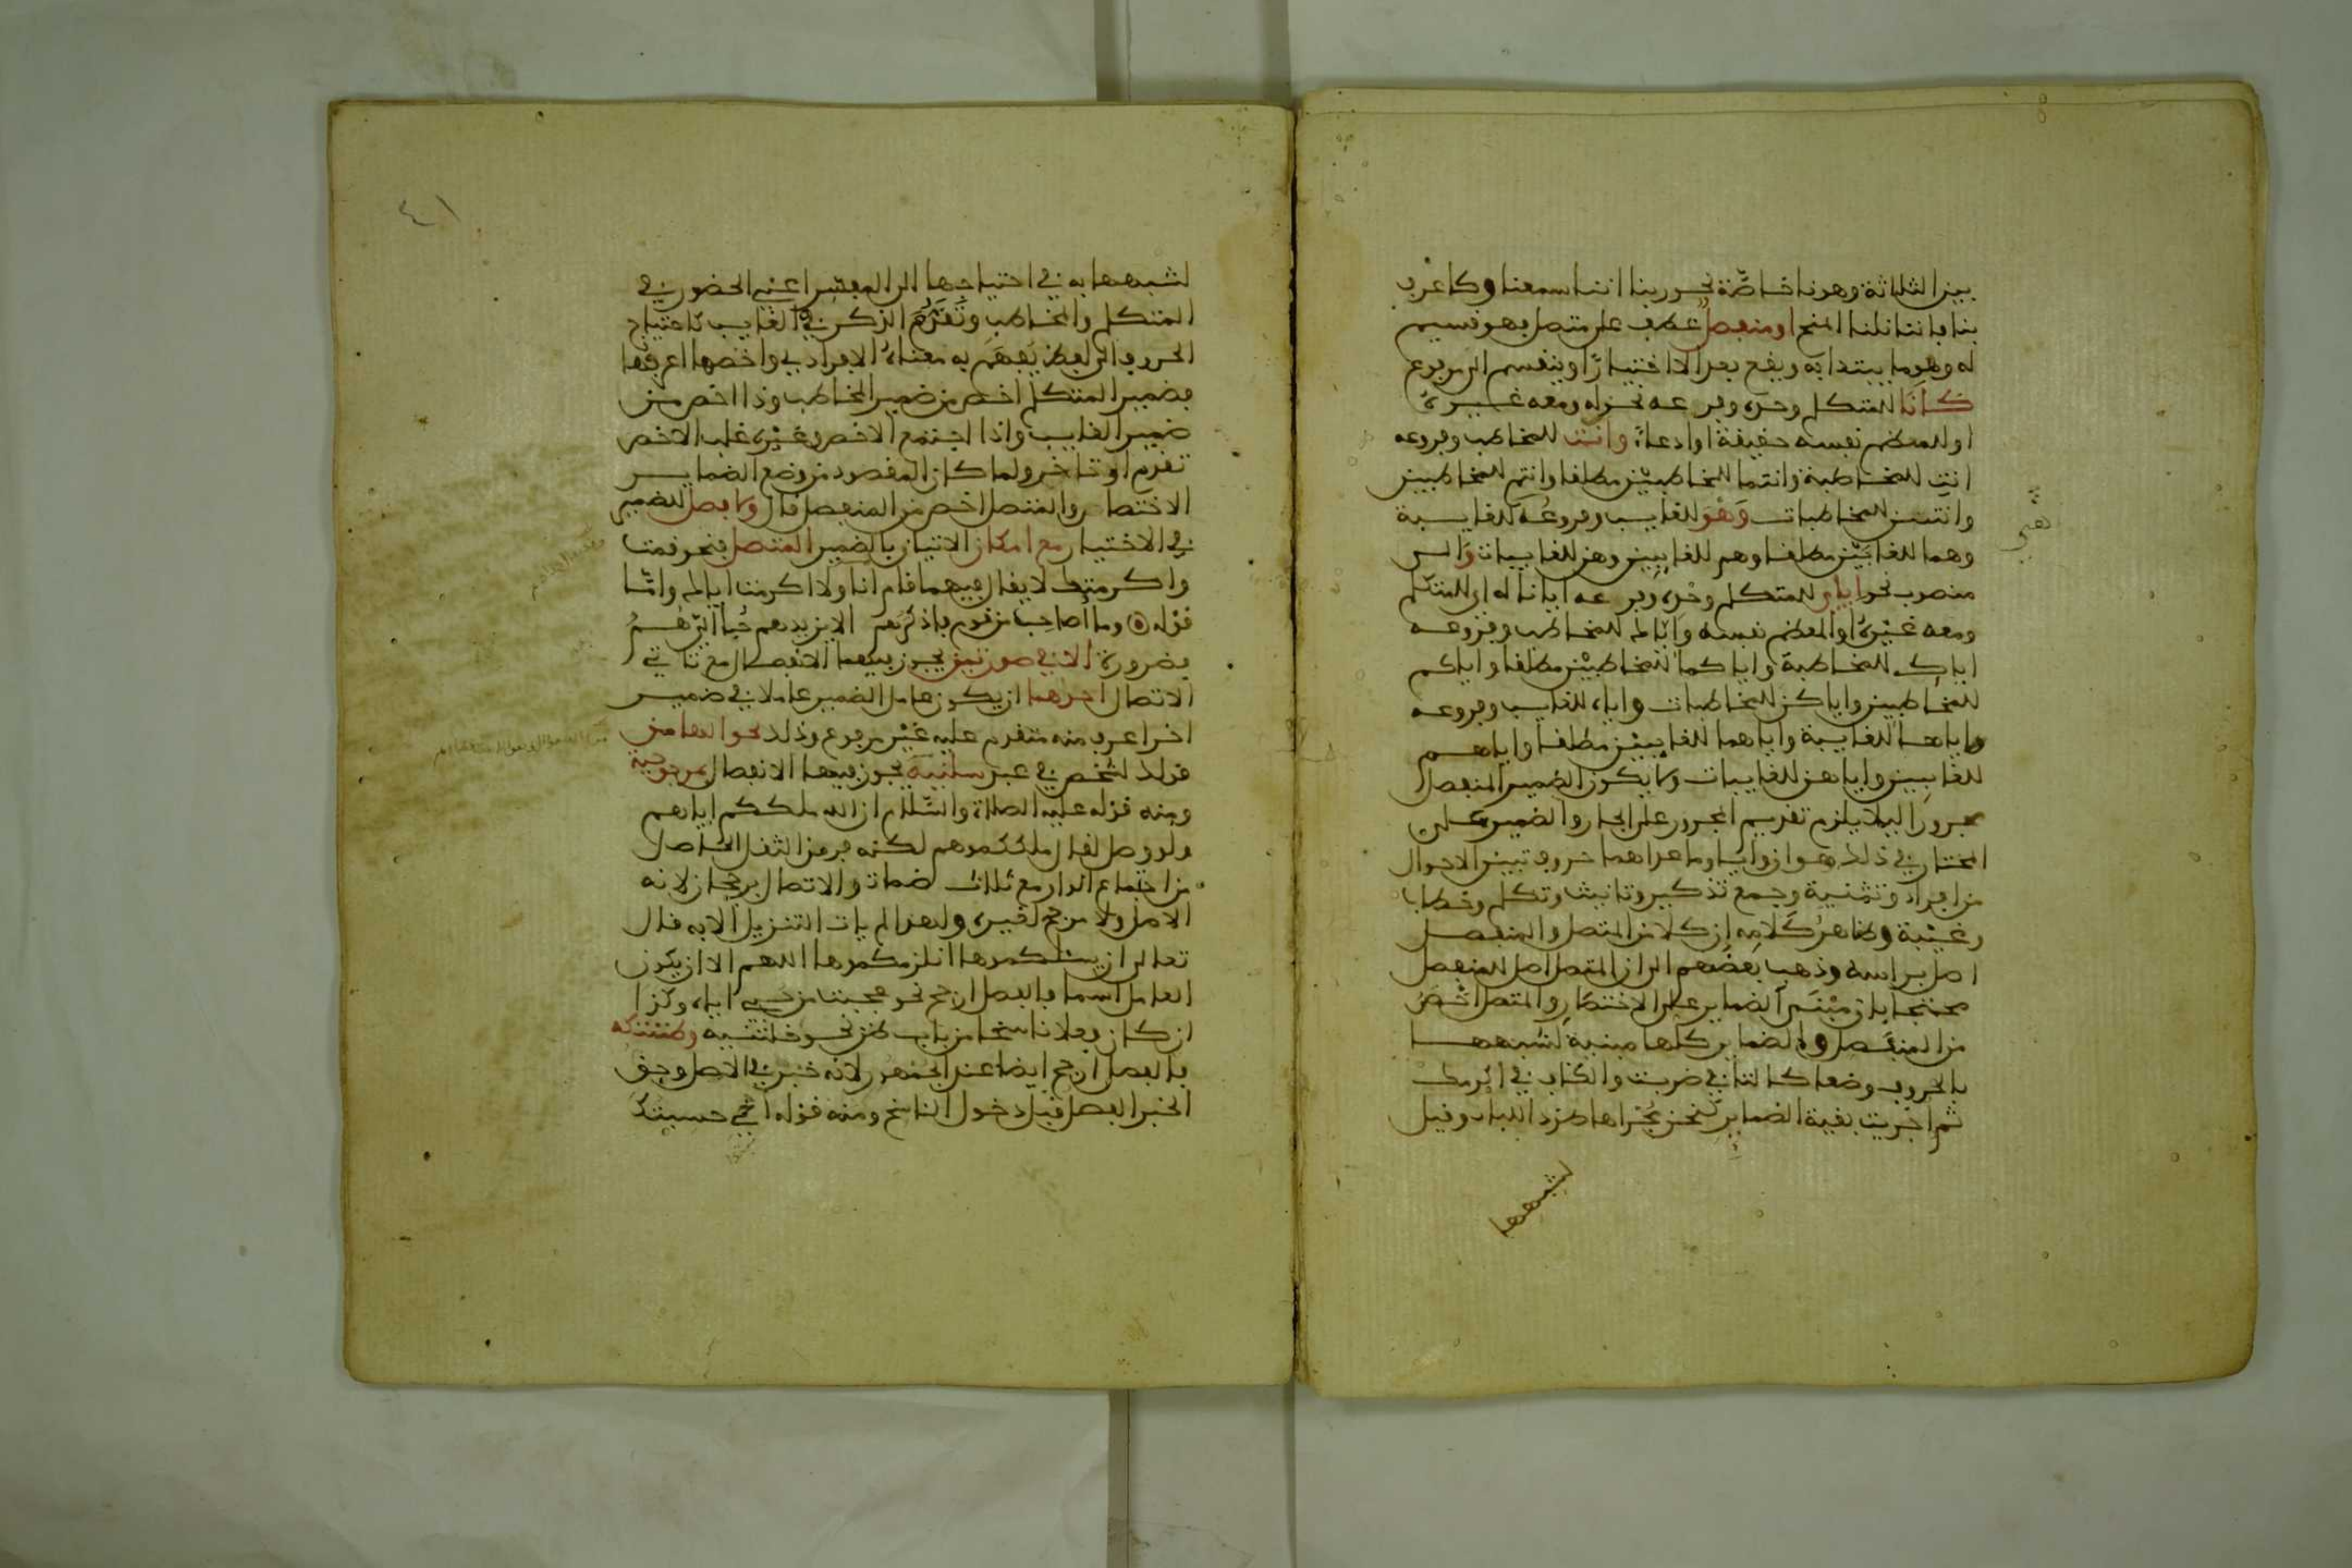 بين الثلاثة وهو نا خاصّة نحو ربنا اننا سمعنا وكاعرف
بنا فاننا نلنا المنح او منفصل عطف على متصل فهو قسيم
له وهو ما يبتدا به ويقع بعد الا اختيارًا وينقسم الى مرفوع
كانا للمتكلم وحده وفرعه نحن له ومعه غيره
او للمعظم نفسه حقيقة او ادعاءً وانت للمخاطب وفروعه
انتِ للمخاطبة وانتما للمخاطبَيْن مطلقا وانتم للمخاطبين
وانتن للمخاطبات وَهْوَ للغايب وفروعُه للغايبة
وهما للغايبَيْن مطلقا وهم للغايبِين وهن للغايبات وَالى
منصوب نحو اياي للمتكلم وحْده وفرعه ايانا له اي للمتكلم
ومعه غيْره او المعظم نفسه وَايّاك للمخاطب وفروعه
اياكِ للمخاطبة واياكما للمخاطبيْن مطلقا واياكم
للمخاطبين واياكن للمخاطبات واياه للغايب وفروعه
واياها للغايبة واياهما للغايبيْن مطلقا واياهم
للغايبِين واياهن للغايبات ولا يكون الضمير المنفصل
مجرورًا ليلا يلزم تقديم المجرور على الجار والضمير على
المختار في ذلك هو ان وايا وما عداهما حروف تبين الاحوال
من افراد وتثنية وجمع تذكير وتانيث وتكلم وخطاب
وغيْبة وظاهرُ كَلامِه ان كلا من المتصل والمنفصل
اصل براسه وذهب بعضهم الى ان المتصل اصل للمنفصل
محتجا بان مبْنَى الضماير على الاختصَارِ والمتصل اخْصَرُ
من المنفصل والضماير كلها مبنية لشبهها
بالحروف وضعا كالتا في ضربت والكاف في اكرمك
ثم اجْريت بقية الضماير نحن مُجْراها طردا للباب وقيل
لشبهها
٤١
لشبهها به في احتياجها الى المفسِّر اعني الحضور في
المتكلم والمخاطب وتَقَدُّمَ الذكر في الغايب كاحتياج
الحروف الى لفظ يُفهَم به معناهُ الافرادي واخصها اعرفُها
فضمير المتكلم اخص من ضمير المخاطب وذا اخص من
ضمير الغايب واذا اجتمع الاخص وغيْره غلب الاخص
تقدم او تاخر ولما كان المقصود من وضع الضماير
الاختصار والمتصل اخصر من المنفصل قال ولا فصل للضمير
في الاختيار مع امكان الاتيان بالضمير المتصل فنحو قمت
واكرمتك لا يقال فيهما قام انا ولا اكرمت اياك وامّا
قوْله ۞ وما أُصاحِبُ من قوم فاذكُرَهم الا يزيدهم حُبًّا اليّ هُمُ
فضرورة الا في صورتين يجوز فيهما الانفصال مع تاتي
الاتصال احداهما ان يكون عامل الضمير عاملا في ضمير
اخر اعرف منه متقدم عليه غيْر مرفوع وذلك نحو الها من
قولك لشخص في عبد سلنيه يجوز فيها الانفصال بمرجوحية
ومنه قوله عليه الصلاة والسّلام ان الله ملككم اياهم
ولو وصل لقال ملككموهم لكنه فر من الثقل الحاصل
من اجتماع الواو مع ثلاث ضمات والاتصال برجحان لانه
الاصل ولا مرجح لغيره ولهذا لم يات التنزيل الا به قال
تعالى ان يسئلكموها انلزمكموها اللهم الا ان يكون
العامل اسما فالفصل ارجح نحو عجبت من حبي اياه وكذا
ان كان فعلا ناسخا من باب ظن نحو خلتنيه وظننتكه
فالفصل ارجح ايضا عند الجمهور لانه خبر في الاصل وحق
الخبر الفصل قبل دخول الناسخ ومنه قوْله اخي حسبتك